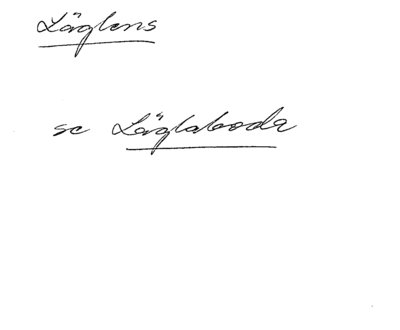 Läglens
se Läglaboda